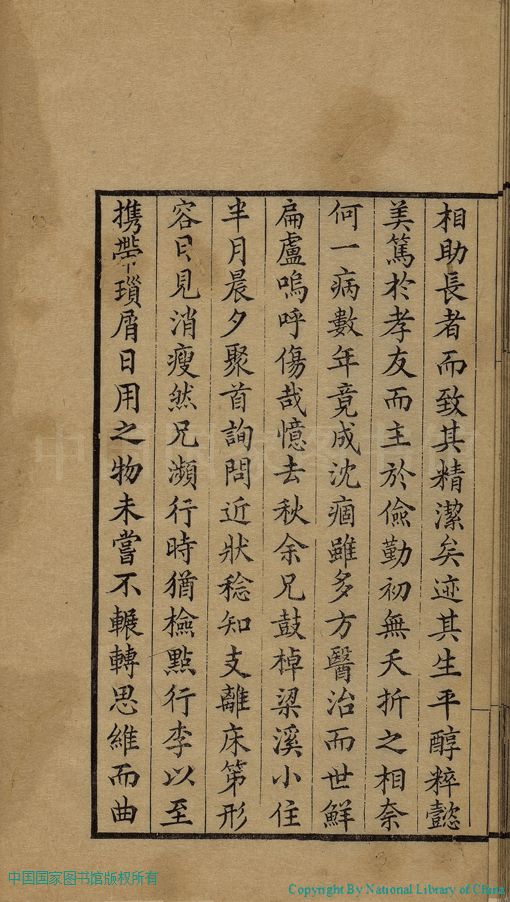 相助長者而致其精潔矣迹其生平醇粹懿
美篤於孝友而主於儉勤初無夭折之相奈
何一病數年竟成沈痼雖多方醫治而世鮮
扁盧嗚呼傷哉憶去秋余兄鼓棹梁溪小住
半月晨夕聚首詢問近狀稔知支離床笫形
容日見消瘦然兄瀕行時猶檢點行李以至
携帶瑣屑日用之物未嘗不輾轉思維而曲
中国国家图书馆版权所有
Copyright By National Library of China